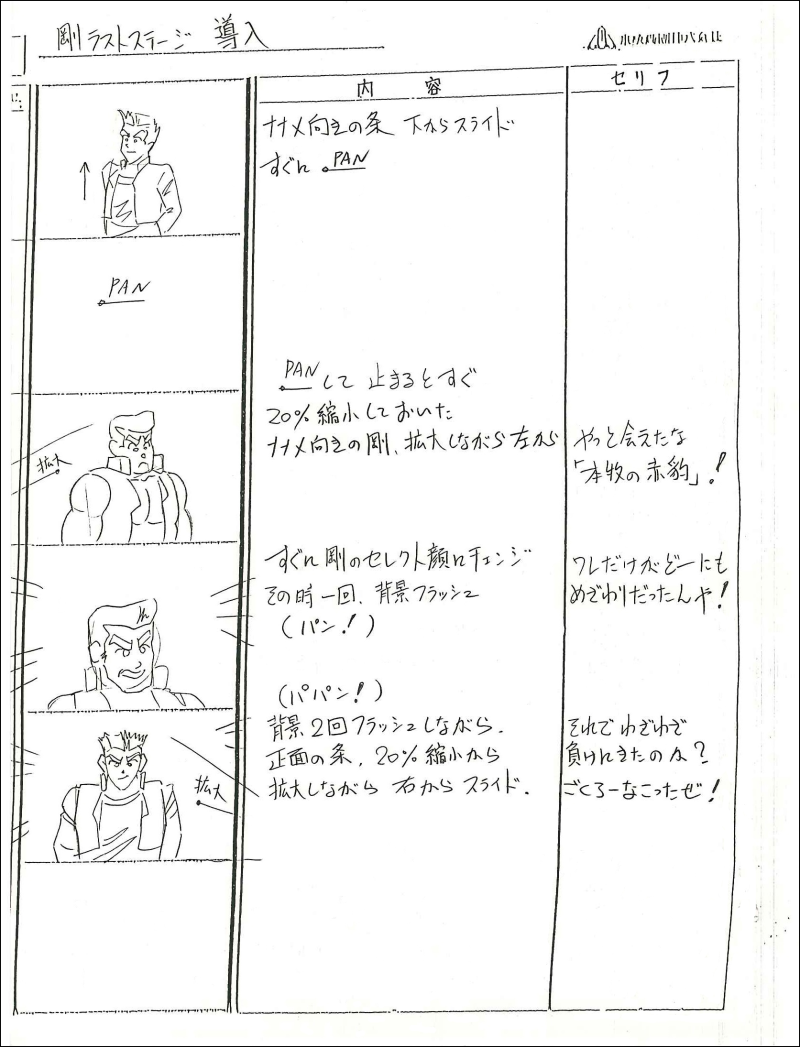 剛ラストステージ 導入
内容
セリフ
ナナメ向きの条 下からスライド
すぐに PAN
PAN
PANして 止まるとすぐ
20%縮小しておいた
ナナメ向きの剛、拡大しながら左から
やっと会えたな
「本牧の赤豹」!
拡大
すぐに剛のセレクト顔にチェンジ
その時一回、背景フラッシュ
(パン!)
ワレだけがどーにも
めざわりだったんや!
(パパン!)
背景2回フラッシュしながら、
正面の条、20%縮小から
拡大しながら 右から スライド.
それで わざわざ
負けにきたのか?
ごくろーなこったぜ!
拡大